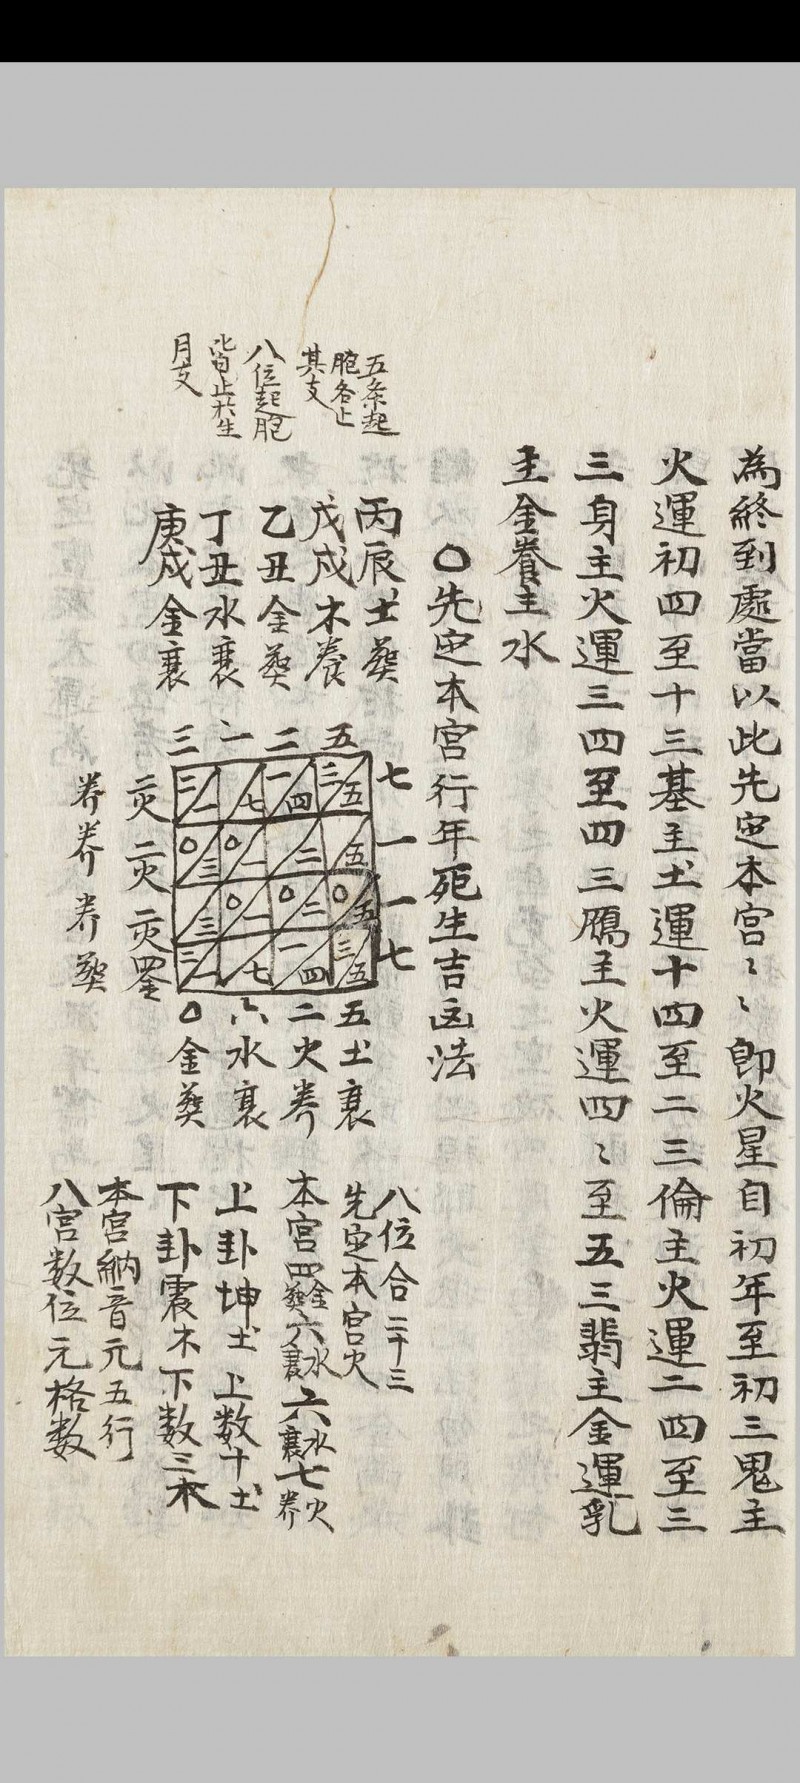 為終到處當以此先定本宮〻〻即火星自初年至初三鬼主
火運初四至十三基主土運十四至二三倫主火運二四至三
三身主火運三四至四三鴈主火運四〻至五三翡主金運乳
主金養主水
○先定本宮行年死生吉凶法
五条起
胞各止
其支
八位起胞
皆止於生
月支
丙辰土葬
戊戌木養
乙丑金葬
丁丑水衰
庚戌金衰
三 一 二 五
三一 七 一四 三五 七
○三 ○一 二 五 一
三 ○一 ○二 ○五 一
三一 七 一四 三五 七
二火 二火 二火
养 养 养 葬
五土衰
二火养
六水衰
○金葬
八位合二十三
先定本宮火
本宮四金葬六水衰六水衰七火养
上卦坤土上数十土
下卦震木下数三木
本宮納音元五行
八宮数位元格数